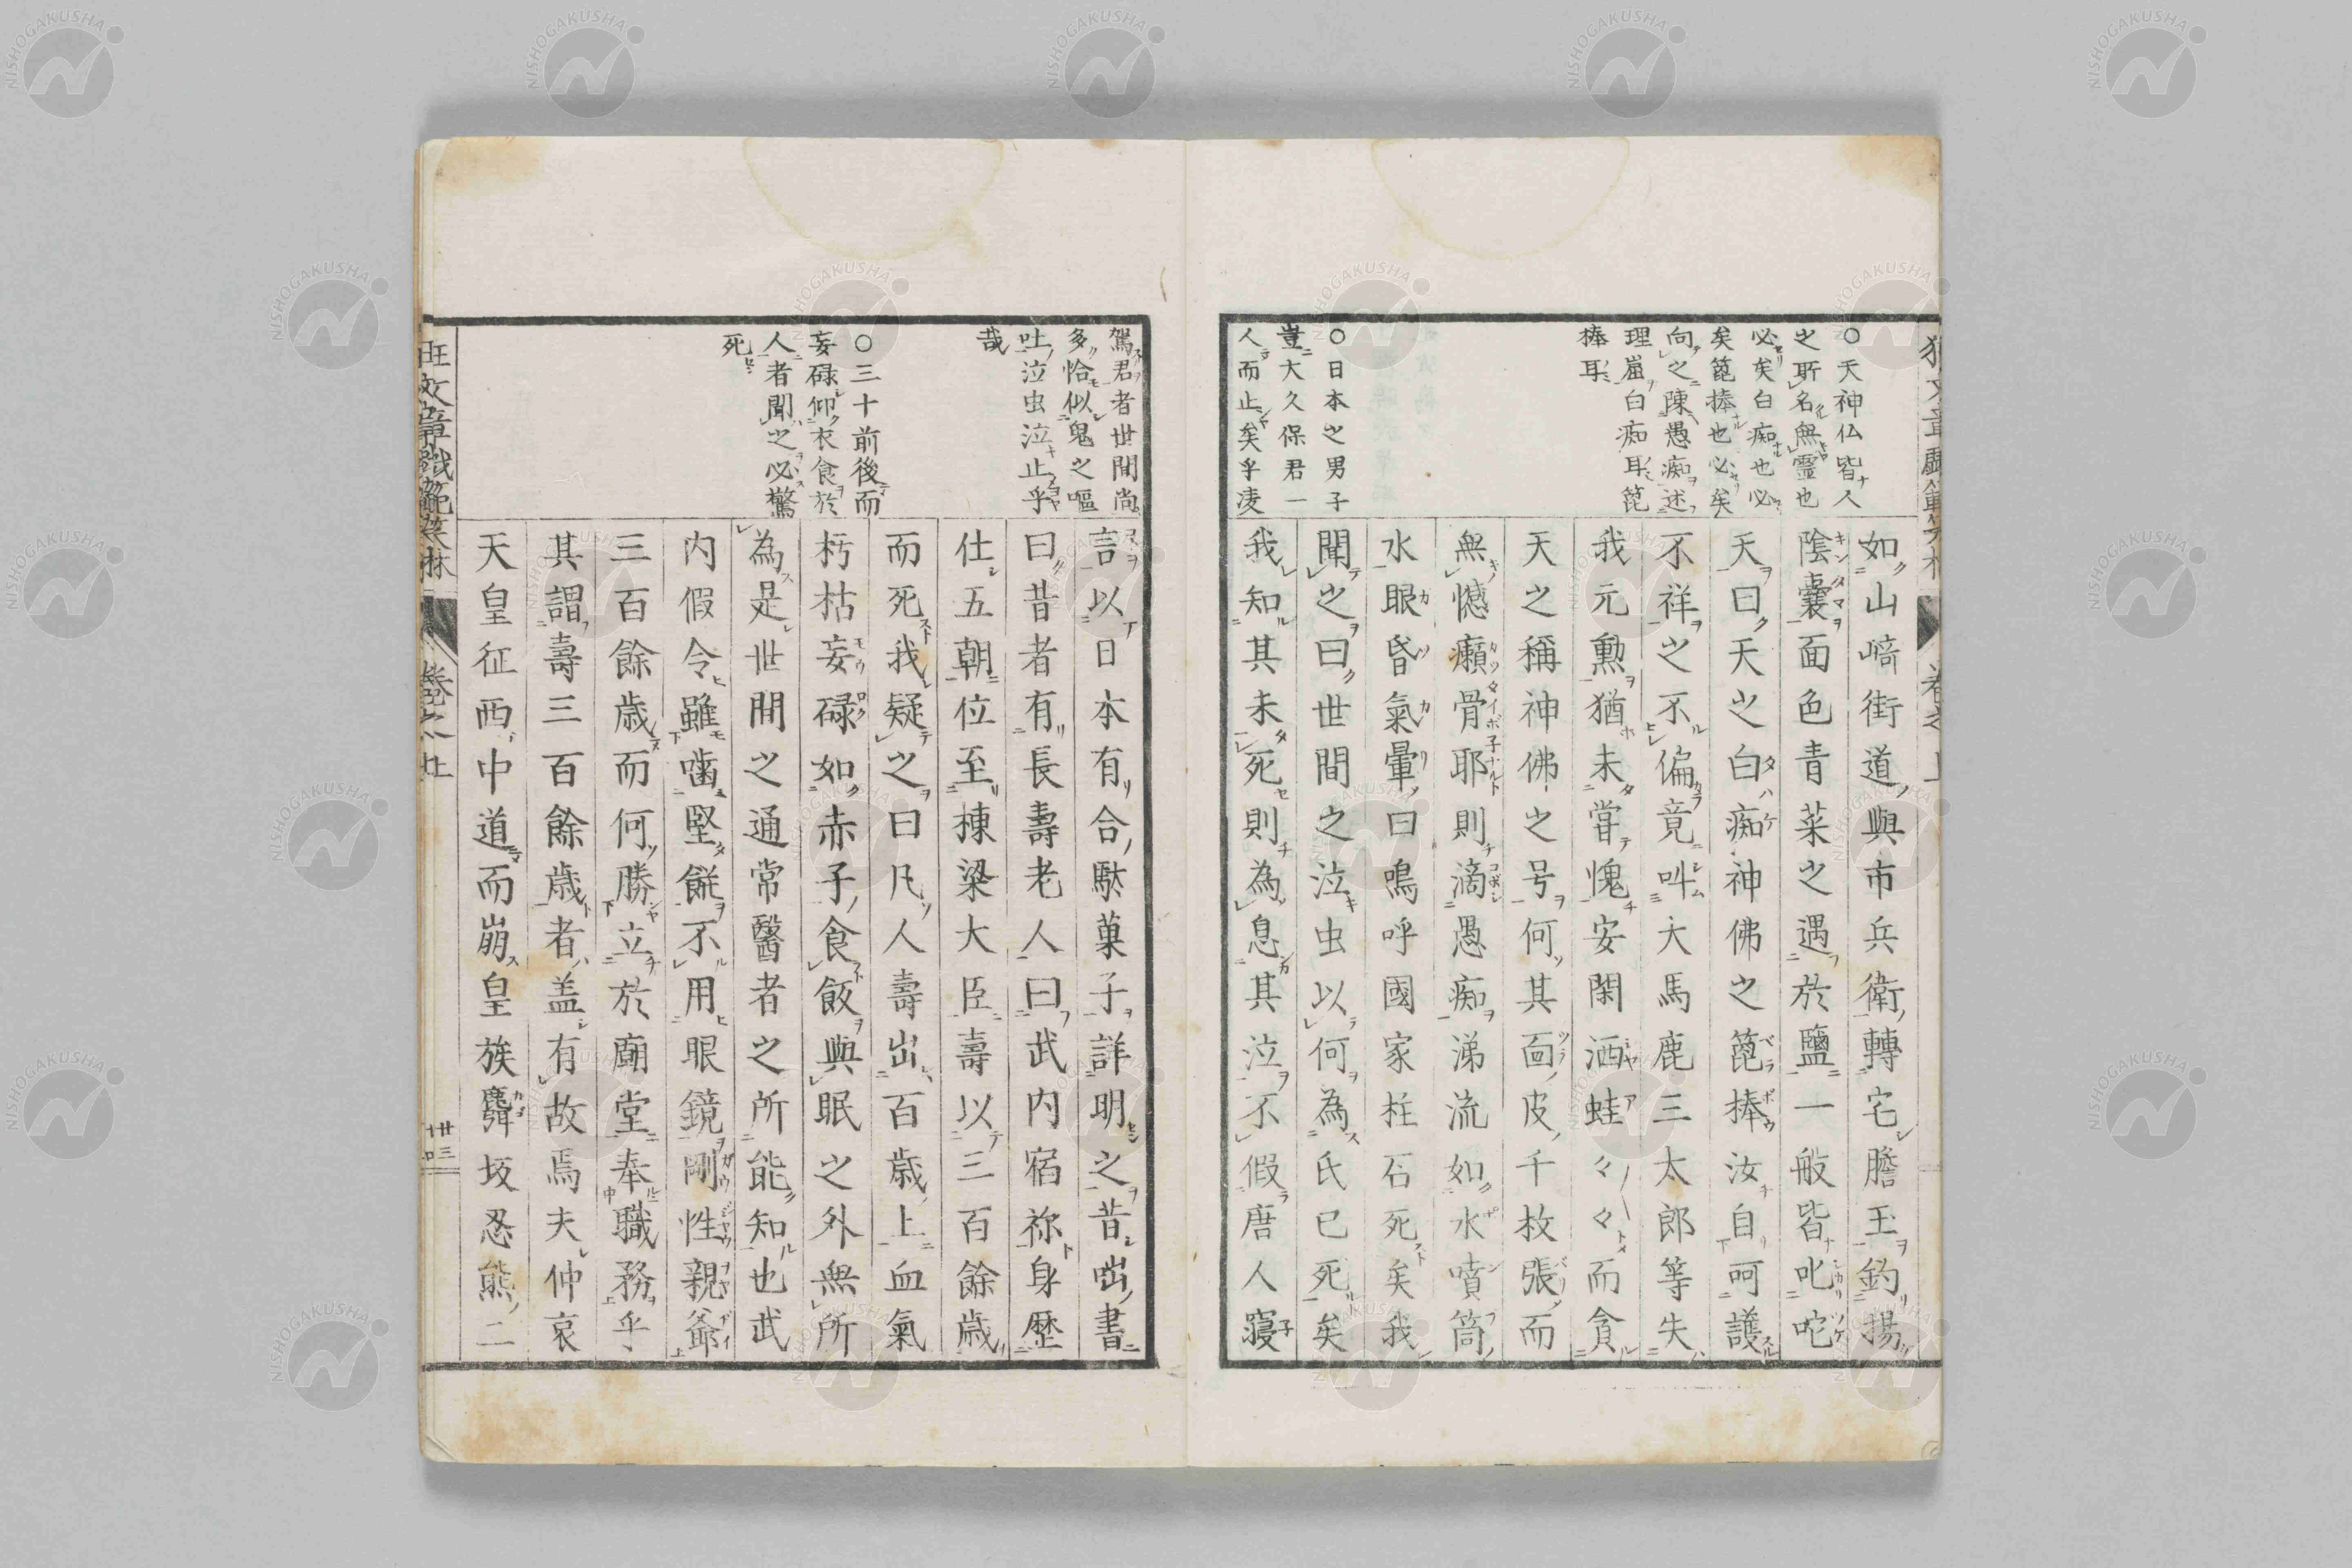 ○天神仏皆人
之所名無霊也
必矣白痴也必
矣箆捧也必矣
向之陳愚痴述
理屈白痴耳箆
捧耳
○日本之男子
豈大久保君一
人而止矣乎凌
如山﨑街道與市兵衛轉宅膽玉釣揚
陰嚢面色青菜之遇於鹽一般皆叱咜
天曰天之白痴神佛之箆捧汝自呵護
不祥之不偏竟叫大馬鹿三太郎等失
我元勲猶未嘗愧安閑洒蛙々々而貪
天之稱神佛之号何其面皮千枚張而
無憾癩骨耶則滴愚痴涕流如水噴筒
水眼昏氣暈曰鳴呼國家柱石死矣我
聞之曰世間之泣虫以何為氏已死矣
我知其未死則為息其泣不假唐人寢
駕君者世間尚
多恰似鬼之嘔
吐泣虫泣止乎
哉
○三十前後而
妄碌仰衣食於
人者聞之必驚
死
言以日本有合駄菓子詳明之昔噹書
曰昔者有長壽老人曰武内宿祢身歴
仕五朝位至棟梁大臣壽以三百餘歳
而死我疑之曰凡人壽出百歳上血氣
朽枯妄碌如赤子食飯與眠之外無所
為是世間之通常醫者之所能知也武
内假令雖噛堅餅不用眼鏡剛性親爺
三百餘歳而何勝立於廟堂奉職務乎
其謂壽三百餘歳者盖有故焉夫仲哀
天皇征西中道而崩皇族麛坂忍熊二